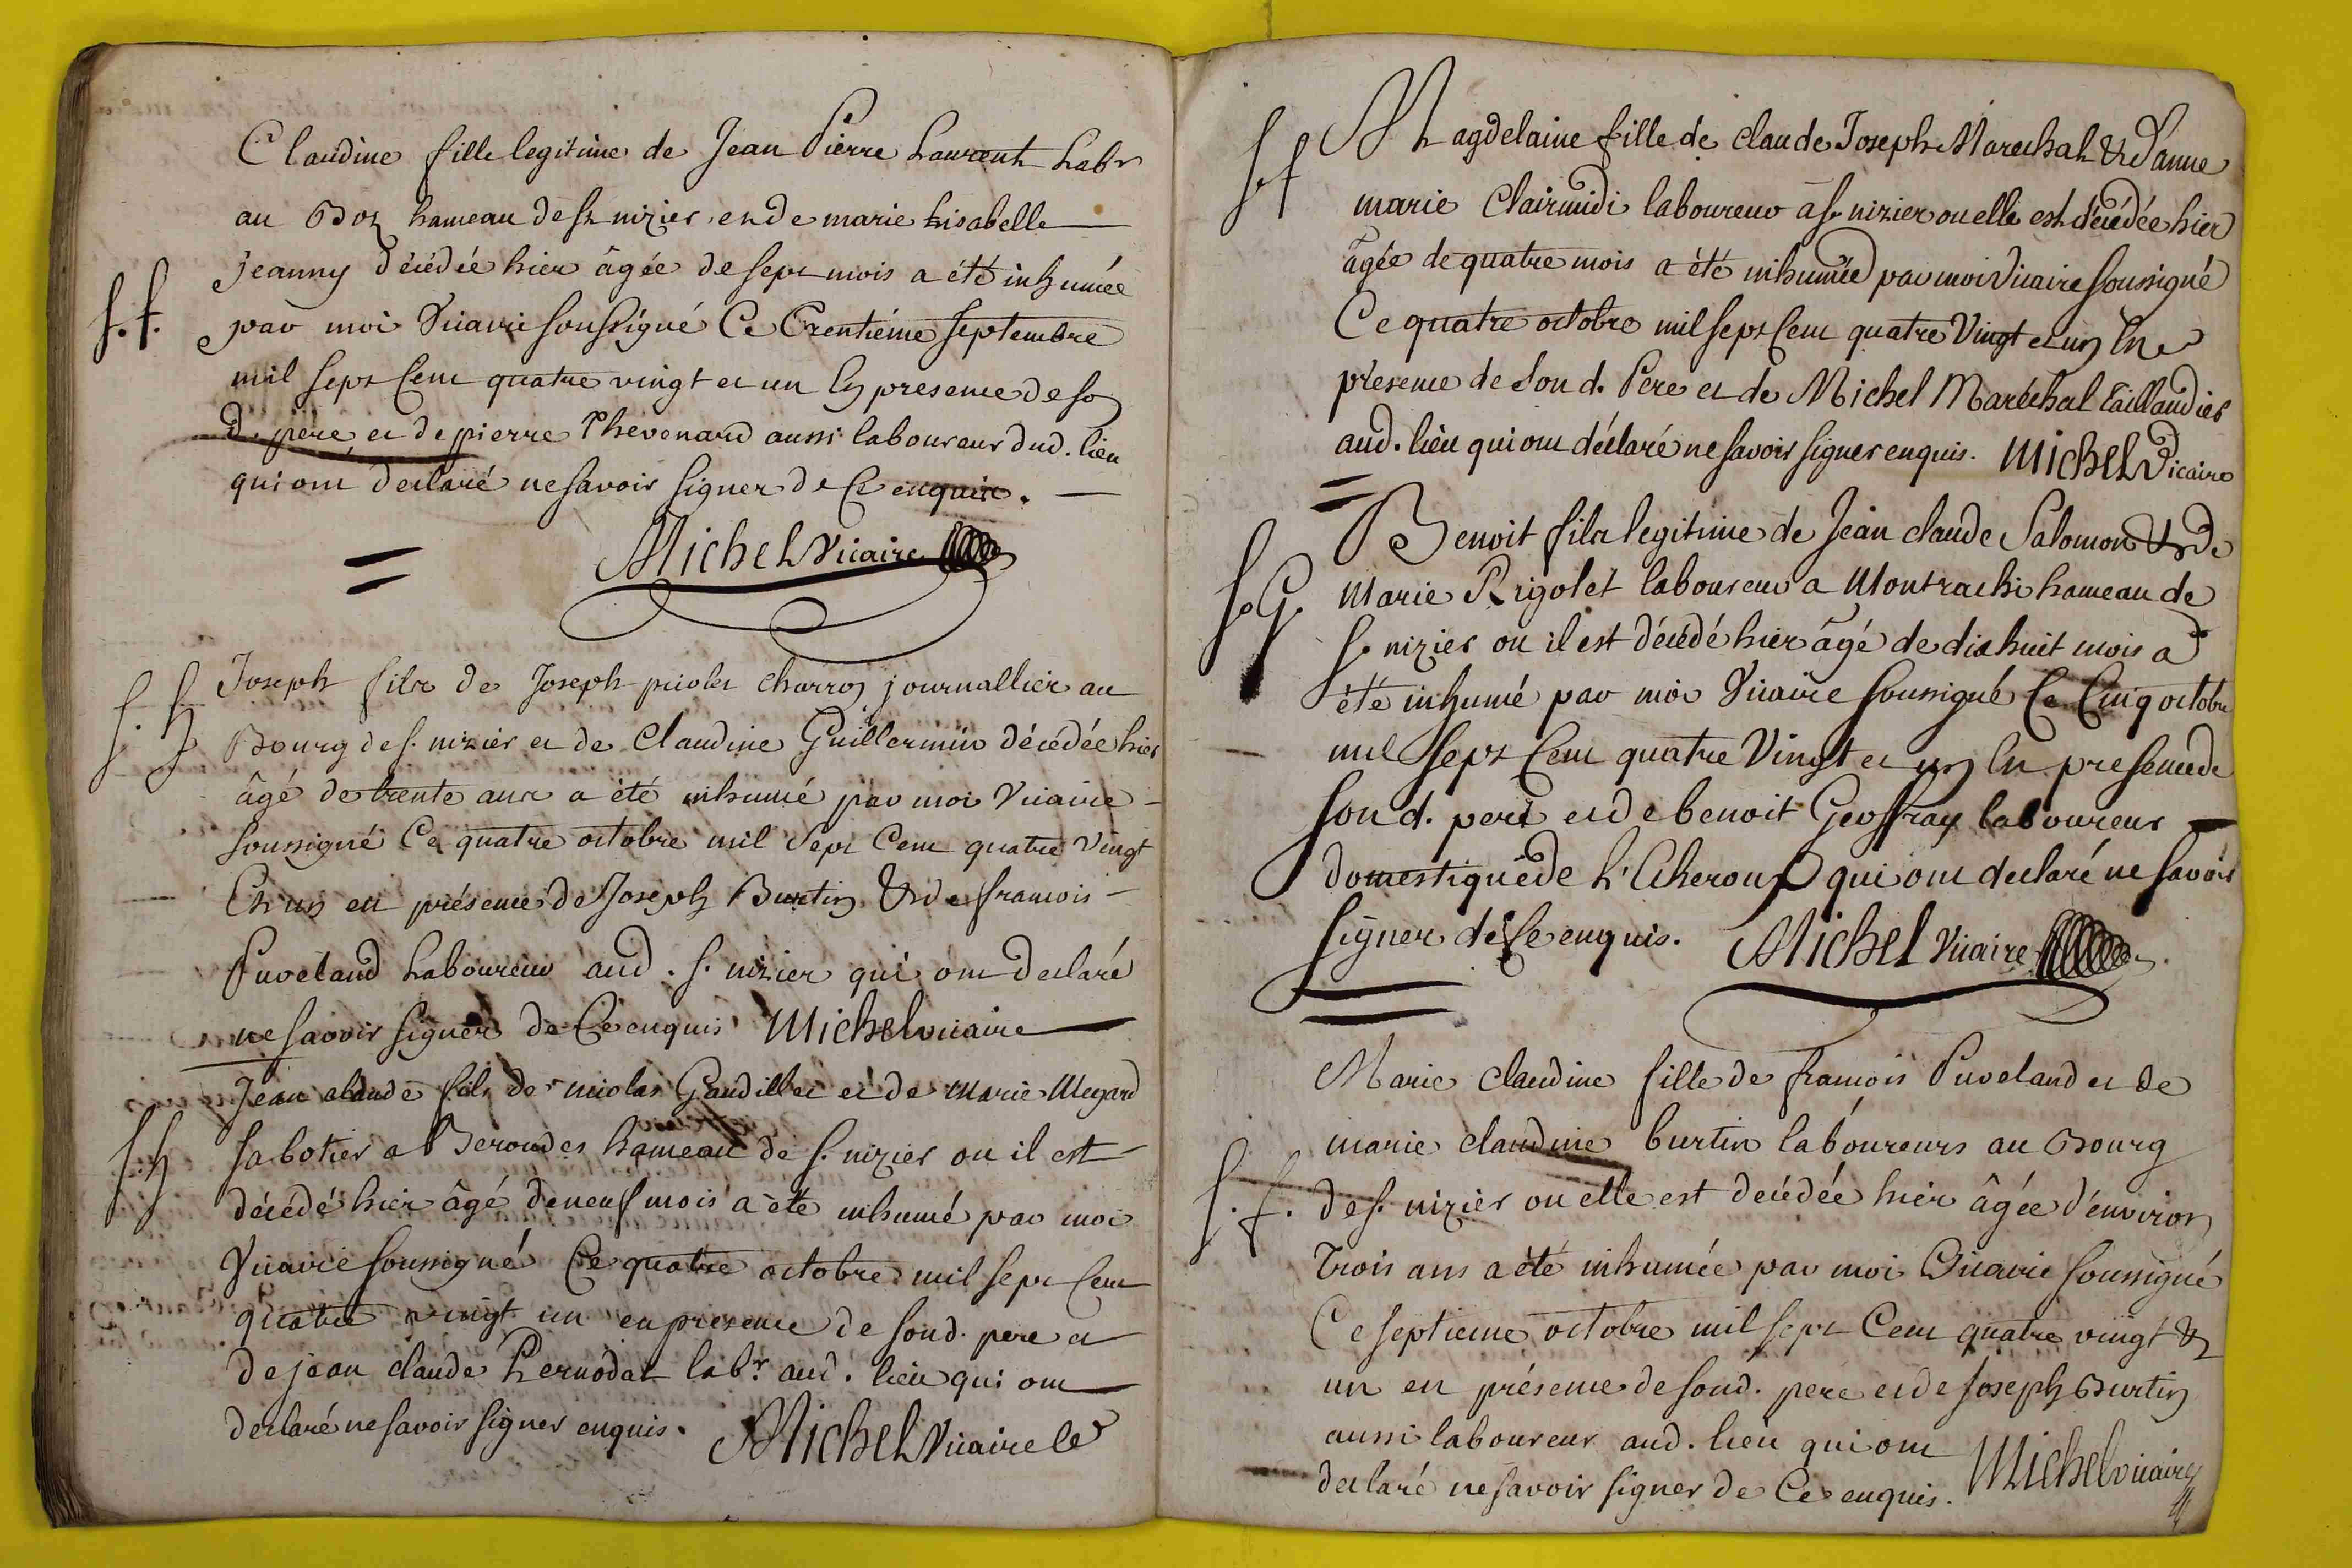 Claudine fille legitime de Jean Pierre Laurent Labr
au Boz hameau de st nizier et de marie Elisabelle
jeanny décédée hier âgée de sept mois a été inhumée
S. f.
par moi Vicaire soussigné Ce Trentiéme septembre
mil sept Cent quatre vingt et un En presence de so
d. père et de pierre Thevenard aussi laboureur dud. lieu
qui ont declaré ne savoir signer de Ce enquis.
Michel Vicaire
Joseph fils de Joseph picolet charron journallier au
S. h
Bourg de s. nizier et de Claudine Guillermin décédée hier
âgé de trente ans a été inhumé par moi Vicaire
soussigné Ce quatre octobre mil Sept Cent quatre Vingt
Et un en présence de Joseph Burtin & de francois
Puveland Laboureur aud. s. nizier qui ont declaré
ne savoir signer de Ce enquis Michel vicaire
Jean claude fils de nicolas Gaudillet et de marie Megard
S. h
sabotier a Beroudes hameau de s. nizier ou il est
décédé hier âgé de neuf mois a été inhumé par moi
Vicaire soussigné Ce quatre octobre mil sept Cent
quatre vingt un en presence de sond. pere et
de jean claude Pernodat labr. aud. lieu qui ont
declaré ne savoir signer enquis. Michel Vicaire
S. f
Magdelaine fille de claude Joseph Marechal & d'anne
marie Clairmidi laboureur a s. nizier ou elle est décédée hier
âgée de quatre mois a été inhumée par moi Vicaire soussigné
Ce quatre octobre mil sept Cent quatre Vingt et un En
presence de Son d. Pere et de Michel Maréchal taillandier
aud. lieu qui ont déclaré ne savoir signer enquis. Michel Vicaire
Benoit fils legitime de Jean claude Salomon & de
S. G.
Marie Rigolet laboureur a Montrachi hameau de
s. nizier ou il est décédé hier âgé de dixhuit mois a
été inhumé par moi Vicaire soussigné Ce Cinq octobre
mil sept Cent quatre Vingt et un En presence de
son d. pere et de benoit Geoffray laboureur
domestique de qui ont declaré ne savoir
signer de Ce enquis. Michel Vicaire
Marie claudine fille de francois Puveland et de
marie claudine burtin laboureurs au Bourg
S. f.
de s. nizier ou elle est decédée hier âgée d'environ
trois ans a été inhumée par moi Vicaire soussigné
Ce septieme octobre mil sept Cent quatre vingt &
un en présence de sond. pere et de Joseph Burtin
aussi laboureur aud. lieu qui ont
declaré ne savoir signer de Ce enquis. Michel vicaire